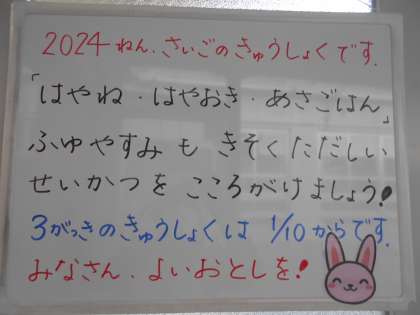 2024ねん、さいごのきゅうしょくです.
「はやね・はやおき・あさごはん」
ふゆやすみも きそくただしい
せいかつを こころがけましょう!
3がっきのきゅうしょくは 1/10からです.
みなさん、よいおとしを!